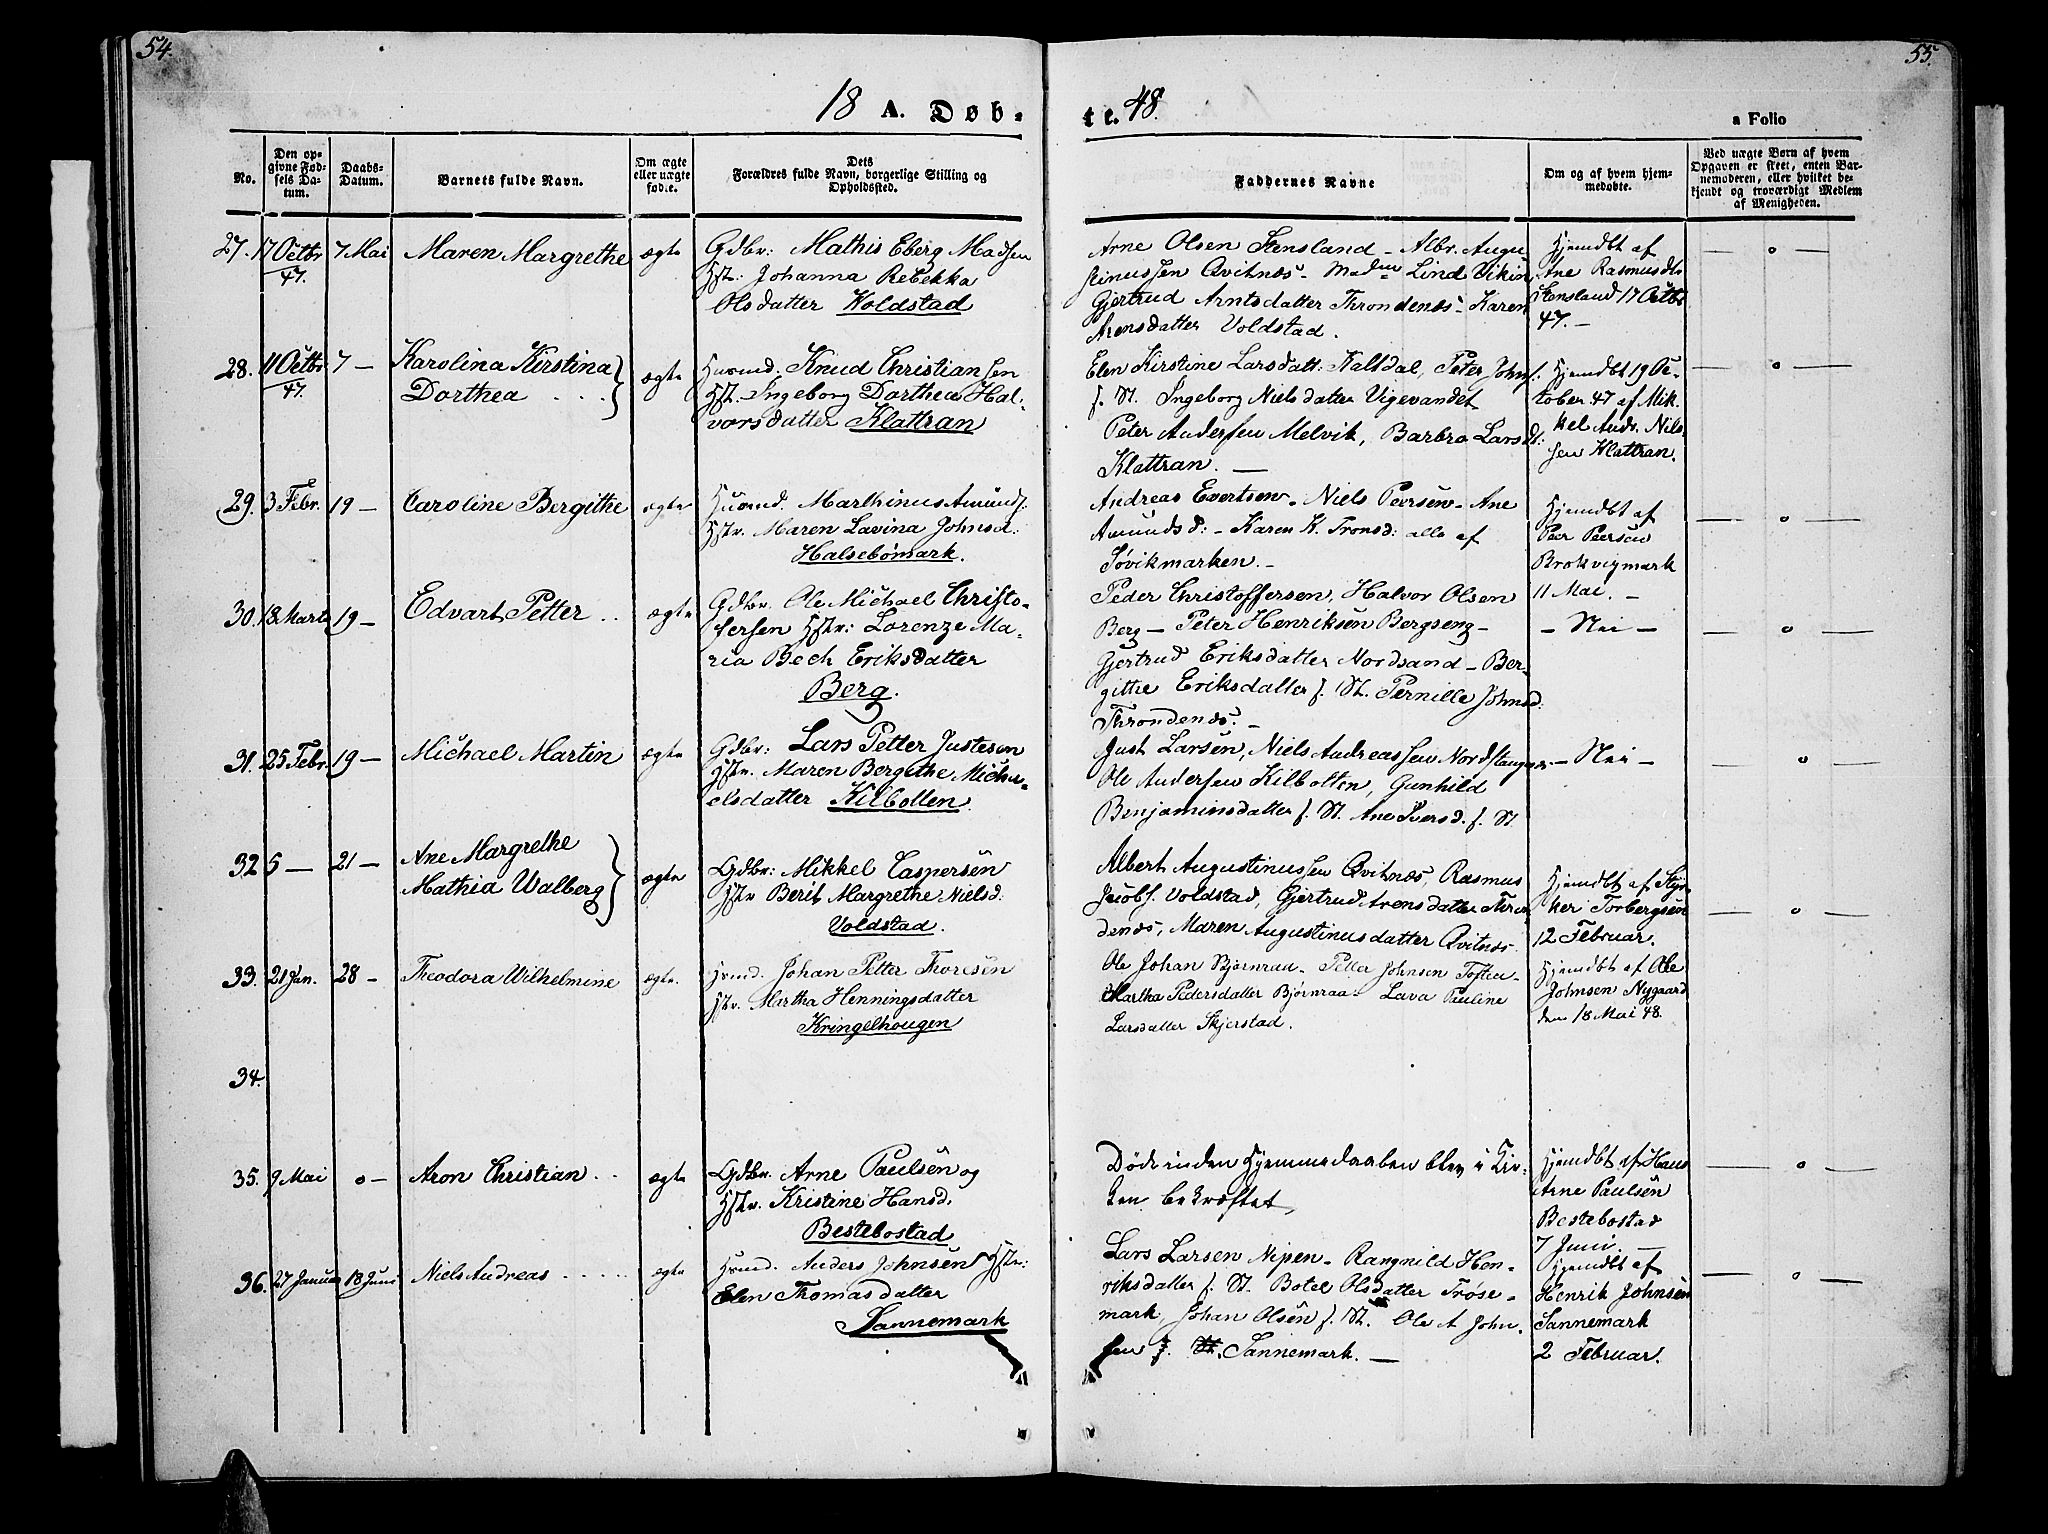 54.
55.
18 A. Døb-
te. 48.
a Folio
No.
Den op-
givne Fød-
sels Da-
tum.
Daabs-
Datum.
Barnets fulde Navn.
Om ægte
eller uægte
fød.e.
Dets
Forældres fulde Navn, borgerlige Stilling og
Opholdssted.
Faddernes Navne
Om og af hvem hjem-
medøbte.
Ved uægte Børn af hvem
Opgaven er skeet, enten Bar-
nemoderen, eller hvilket be-
kjendt og troværdigt Medlem
af Menigheden.
27. 17 Octbr 47. 7 Mai
Maren Margrethe
ægte
Gdbr: Mathis Eberg Madsen
Hst: Johanna Rebekka
Olsdatter Voldstad
Arne Olsen Stensland - Albr. Augu
stinussen Qvitnæs - Madm Lind Vikin
Gjertrud Arntsdatter Throndenæs - Karen
Arensdatter Voldstad.
Hjemdbt af
Ane Rasmusdtr
Stensland 17 Octbr
47. -
— o —
28. 11 Octbr 47. 7 —
Karolina Kirstina
Dorthea . . .
ægte
Husmd. Knud Christiansen
Hst. Ingeborg Dorthea Hal-
vorsdatter Klattran
Elen Kirstine Larsdatt: Kaltdal, Peter Johns.
f. St. Ingeborg Nielsdatter Vigevandet
Peter Andersen Melvik, Barbro Larsd:
Klattran. —
Hjemdbt 19 Oc-
tober 47 af Mik-
kel Andr. Nils-
sen Klattran.
— o —
29. 3 Febr. 19 —
Caroline Bergithe
ægte
Husmd. Marthinus Amunds.
Hstr. Maren Lavina Johnsd.
Halsebømark.
Andreas Evertsen - Niels Peersen - Ane
Amundsd: - Karen K. Tronsd: alle af
Søvikmarken. -
Hjemdbt af
Peer Peersen
Brokvigmark
11 Mai. -
— o —
30. 18 Marts 19 —
Edvart Petter . .
ægte
Gdbr. Ole Michael Christo-
fersen Hstr: Lorenze Ma-
ria Bech Eriksdatter
Berg.
Peder Christoffersen, Halvor Olsen
Berg - Peter Henriksen Bergseng -
Gjertrud Eriksdatter Nordsand - Ber-
githe Eriksdatter f. St. Pernille Johnsd.
Throndenæs. -
- Nei -
— o —
31. 25 Febr. 19 —
Michael Martin
ægte
Gdbr: Lars Petter Justesen
Hstr. Maren Bergithe Micha-
elsdatter Kilbotten.
Just Larsen, Niels Andreassen Nordstangnes
Ole Andersen Kilbotten, Gunhild
Benjaminsdatter f. St. Ane Iversd. f. St.
- Nei -
— o —
32. 5 — 21 —
Ane Margrethe
Mathia Walberg
ægte
Gdbr: Mikkel Caspersen
Hstr Berit Margrethe Nielsd.
Voldstad.
Albert Augustinussen Qvitnæs, Rasmus
Jacobs. Voldstad, Gjertrud Arensdatter Thron
denæs, Maren Augustinusdatter Qvitnæs.
Hjemdbt af Styr-
ker Torbergsen
12 Februar.
— o —
33. 21 Jan. 28 -
Theodora Wilhelmine
ægte.
Husmd. Johan Petter Thoresen
Hstr. Martha Henningsdatter
Kringelhougen
Ole Johan Bjørnraa - Petter Johnsen Toften -
Martha Pedersdatter Bjørnraa - Lava Pauline
Larsdatter Skjerstad.
Hjemdbt af Ole
Johnsen Nygaard
den 18 Mai 48.
34.
35. 9 Mai o -
Aron Christian . .
ægte
Gdbr. Arne Paulsen og
Hstr. Kristine Hansd.
Bestebostad
Døde inden Hjemmedaaben blev i Kir-
ken bekræftet,
Hjemdbt af Hans
Arne Paulsen
Bestebostad
7 Juni. —
— o —
36. 27 Januar 18 Juni
Niels Andreas . . . . .
ægte
Husmd. Anders Johnsen Hstr:
Elen Thomasdatter
Sannemark
Lars Larsen Nipen - Rangnild Hen-
riksdatter f. St. Botel Olsdatter Trøse-
mark, Johan Olsen f. St. Ole A John-
sen f. St. Sannemark. —
Hjemdbt af
Henrik Johnsen
Sannemark
2 Februar.
— o —